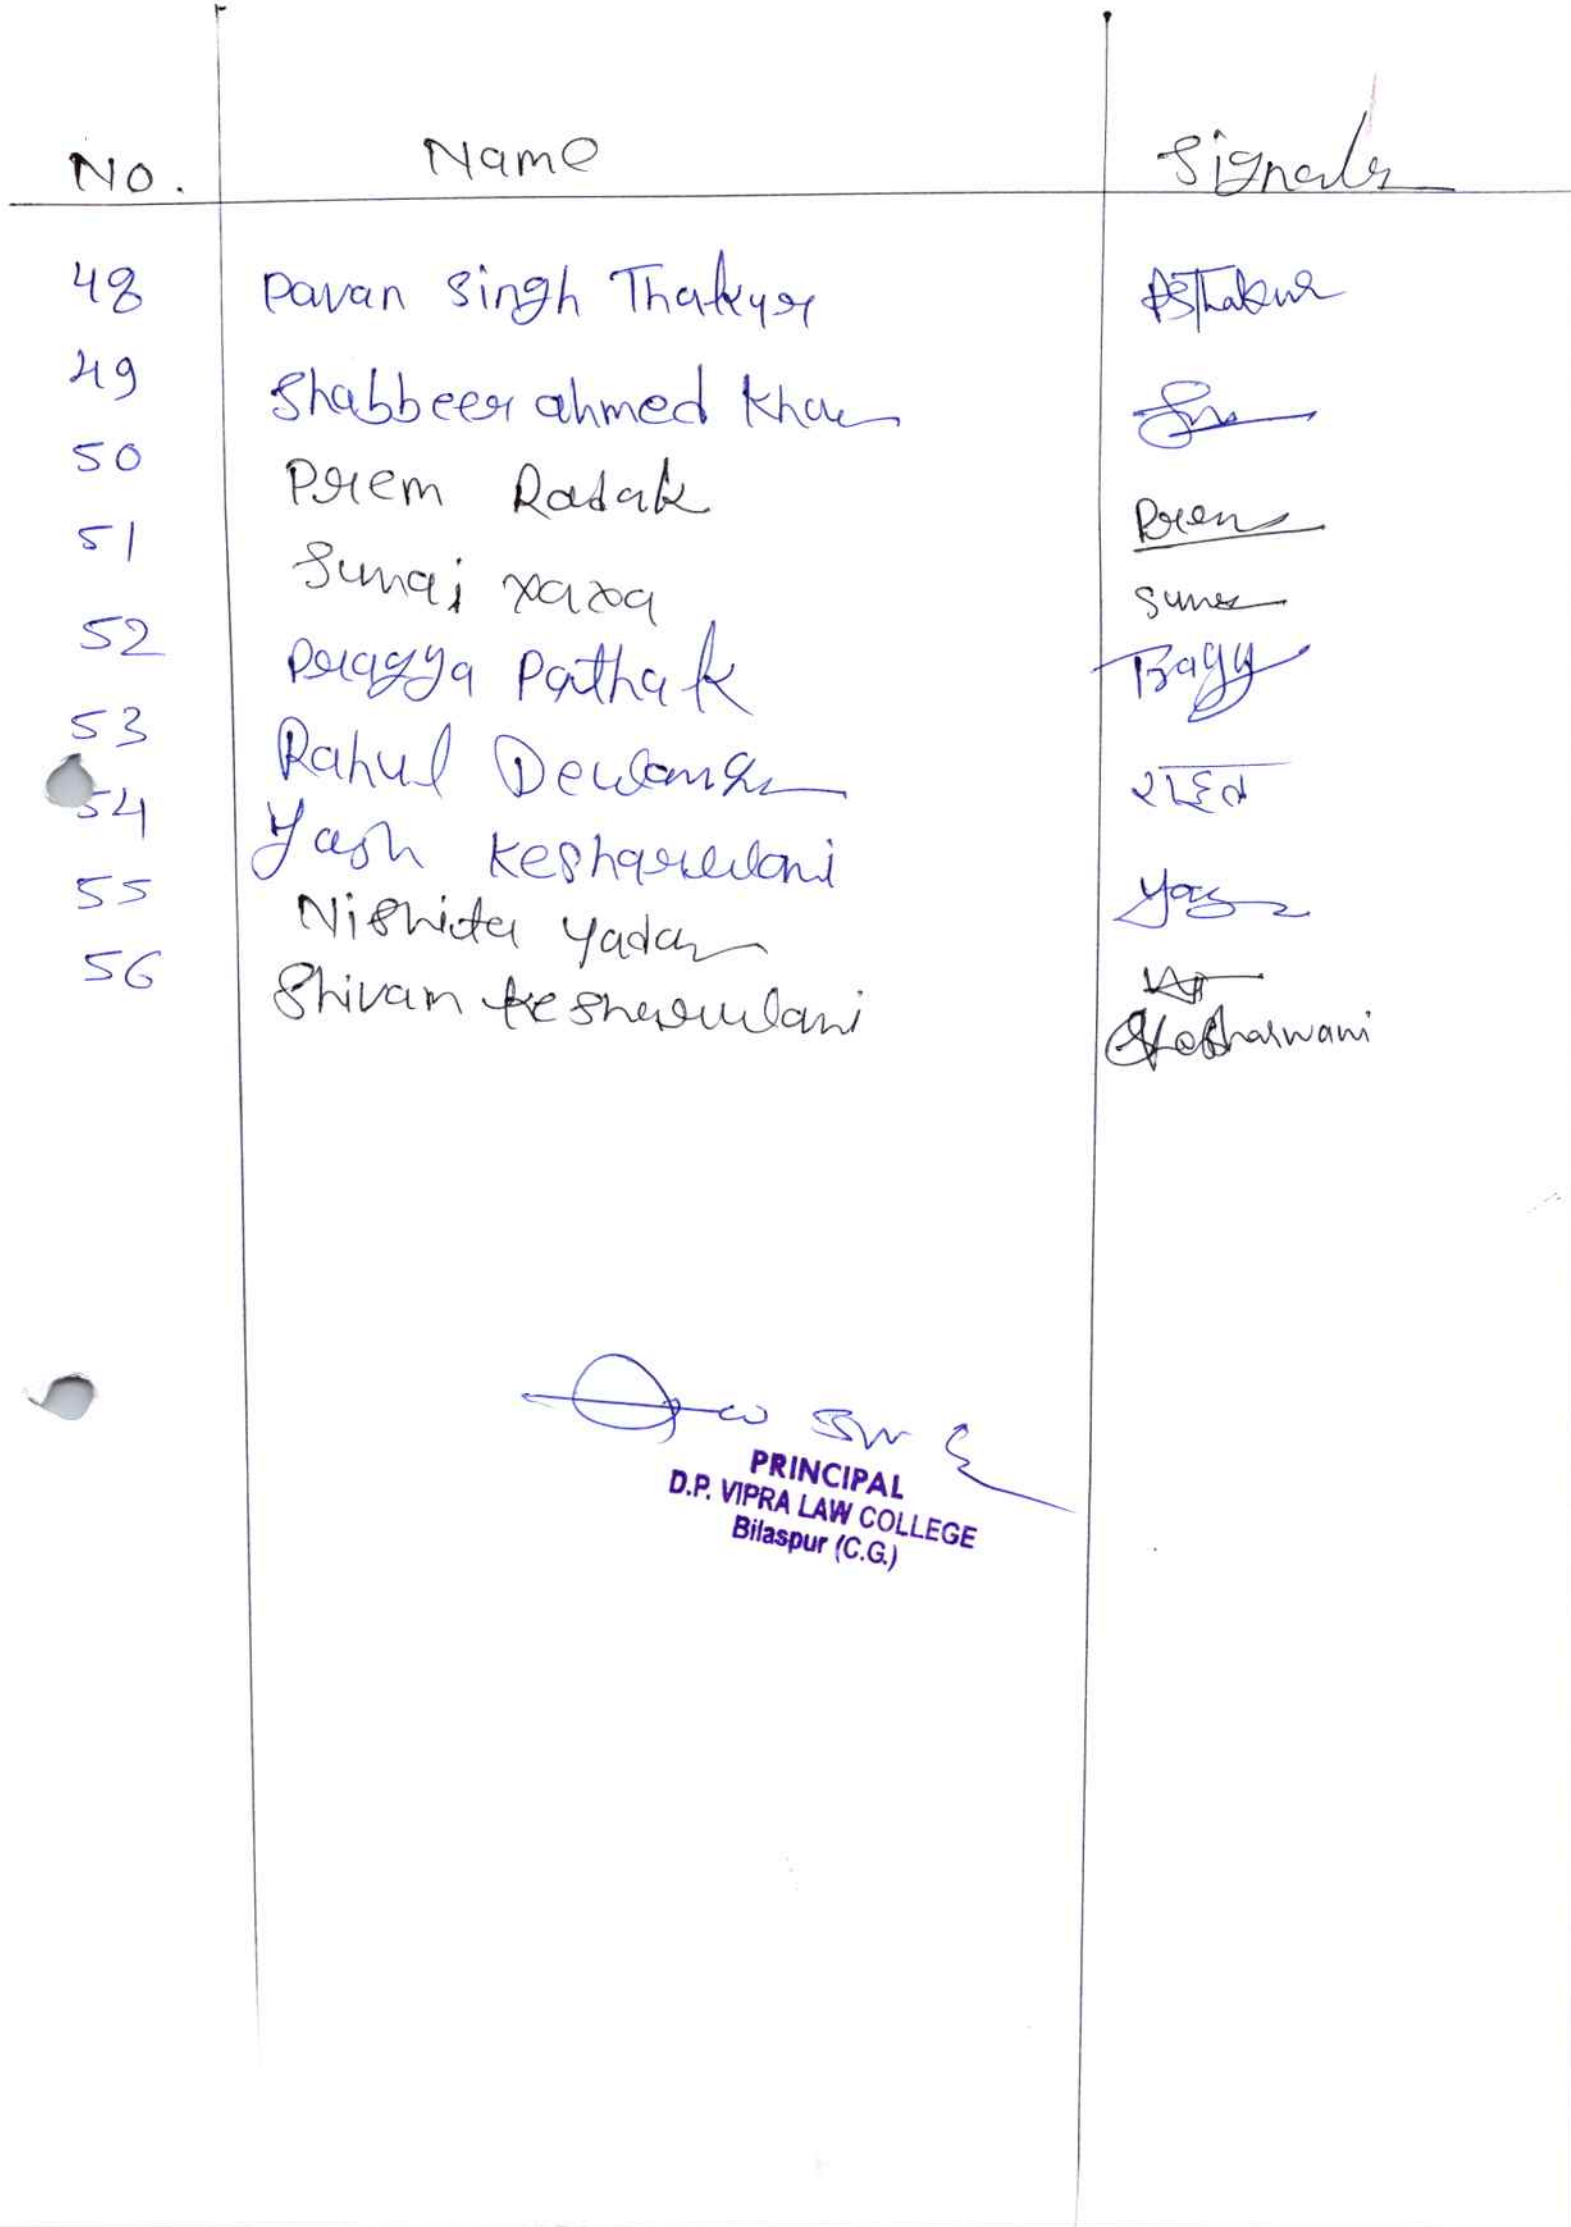 No. Name Signature
48 Pavan Singh Thakur PSThakur
49 Shabbeer ahmed Khan
50 Prem Radak Prem
51 Sunai xaxa Sunai
52 Pragya Pathak Pragy
53 Rahul Dewangan राहुल
54 Yash Kesharwani Yash
55 Nishita Yadav
56 Shivam Kesharwani SKesharwani
PRINCIPAL
D.P. VIPRA LAW COLLEGE
Bilaspur (C.G.)